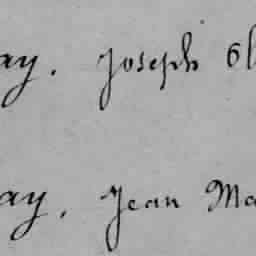 ay. Joseph
ay. Jean Ma